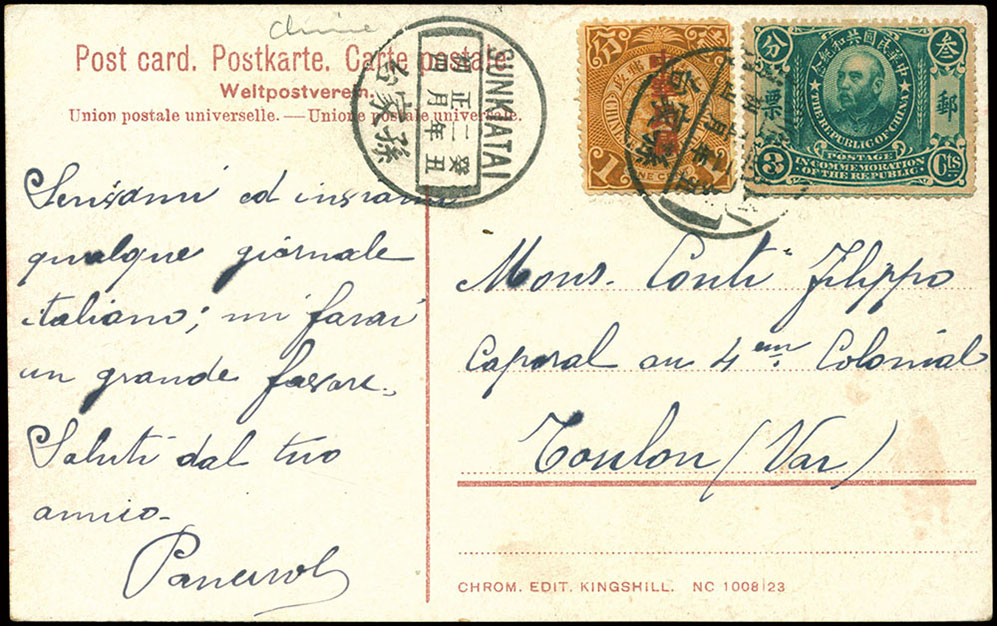 Chine
Post card. Postkarte. Carte postale.
Weltpostverein.
Union postale universelle. — Union postale universelle.
SUNKIATAI
癸丑
二年
正月
初四
孫家台
分
CHINA
1
ONE CENT
1
中華民國共和紀念
分 郵 票 叁
THE REPUBLIC OF CHINA
POSTAGE
3 IN COMMEMORATION Cts
OF THE REPUBLIC
qualque giornale
italiano; mi farai
un grande favore.
Saluti dal tuo
amico-
Mons. Conti Filippo
Caporal au 4em. Colonial
Toulon (Var)
CHROM. EDIT. KINGSHILL. NC 1008|23